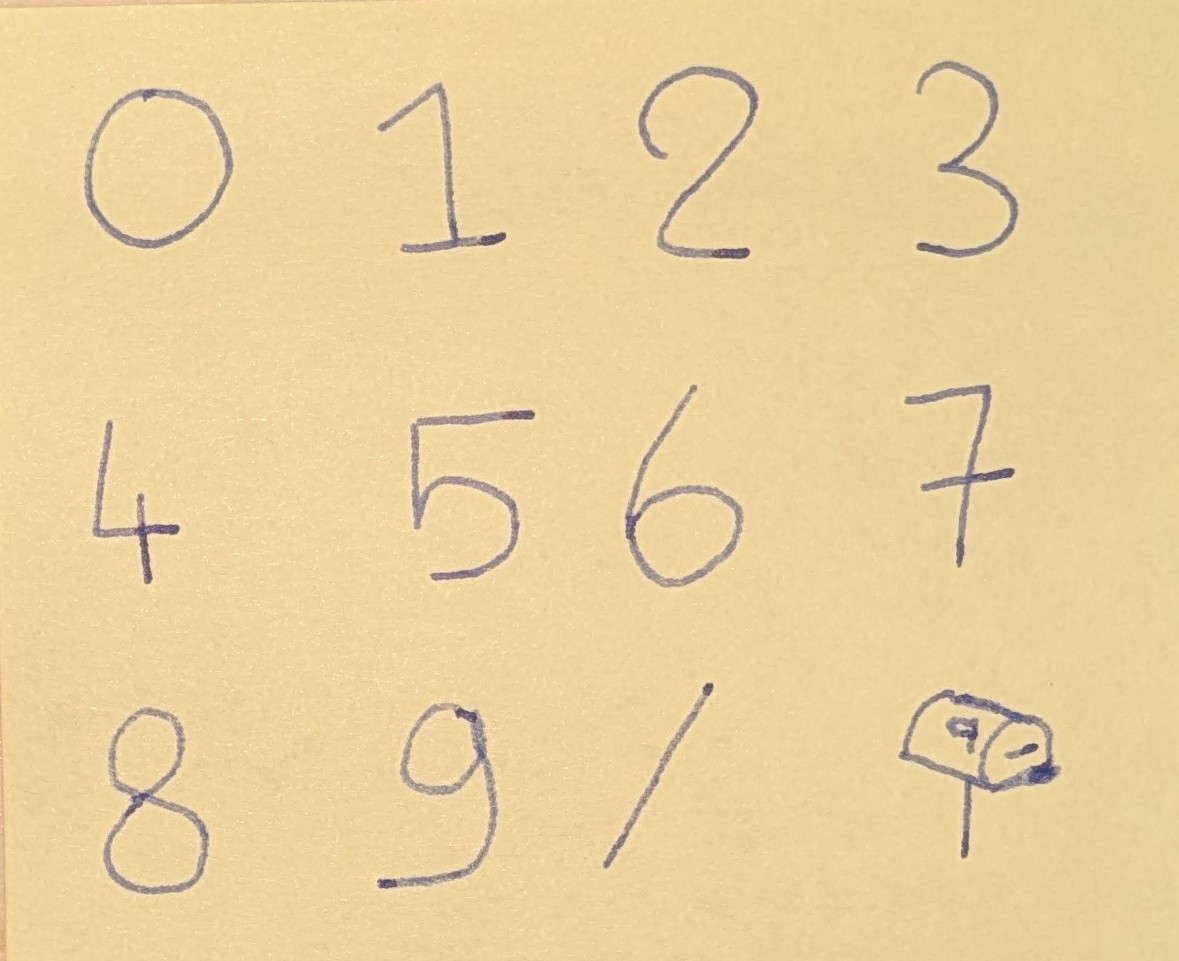 0 1 2 3
4 5 6 7
8 9 /